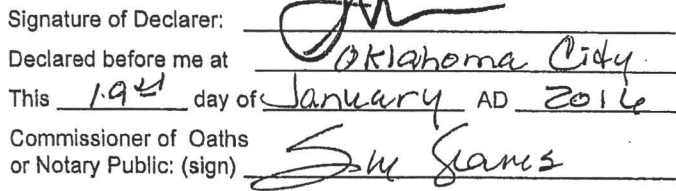 Signature of Declarer:
Declared before me at Oklahoma City
This 19th day of January AD 2016
Commissioner of Oaths
or Notary Public: (sign)